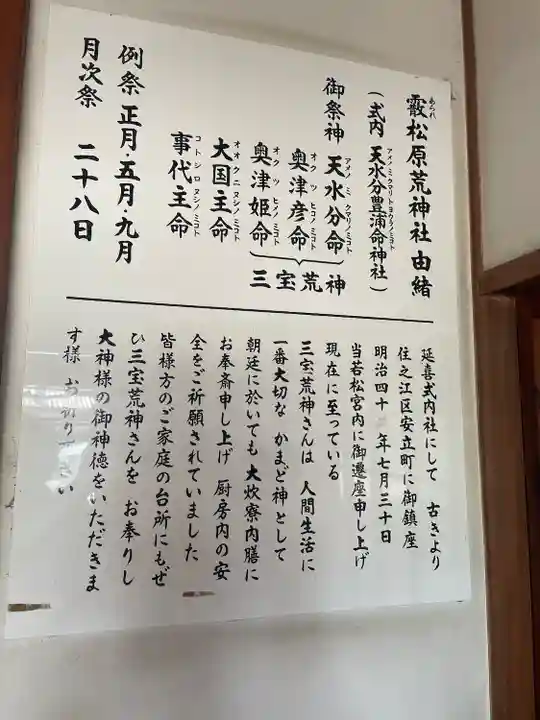 霰松原荒神社 由緒
あられ
（式内 天水分豊浦命神社）
アメノミクマリトヨウラノミコト
御祭神 天水分命
アメノミクマリノミコト
奥津彦命
オクツヒコノミコト
奥津姫命
オクツヒメノミコト
三宝荒神
大国主命
オオクニヌシノミコト
事代主命
コトシロヌシノミコト
例祭 正月・五月・九月
月次祭 二十八日
延喜式内社にして 古きより
住之江区安立町に御鎮座
明治四十 年七月三十日
当若松宮内に御遷座申し上げ
現在に至っている
三宝荒神さんは 人間生活に
一番大切な かまど神として
朝廷に於いても 大炊寮内膳に
お奉斎申し上げ 厨房内の安
全をご祈願されていました
皆様方のご家庭の台所にもぜ
ひ三宝荒神さんを お奉りし
大神様の御神徳をいただきま
す様 お祈り下さい